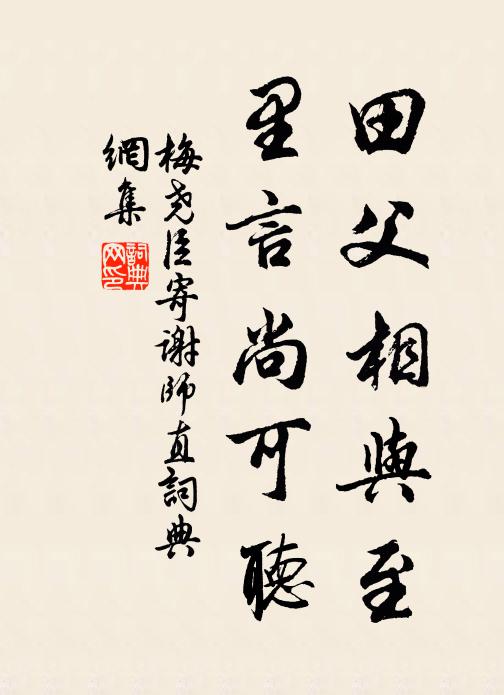 田父相與至
里言尚可聽
梅堯臣寄謝師直詞典
網集
詞典
网印